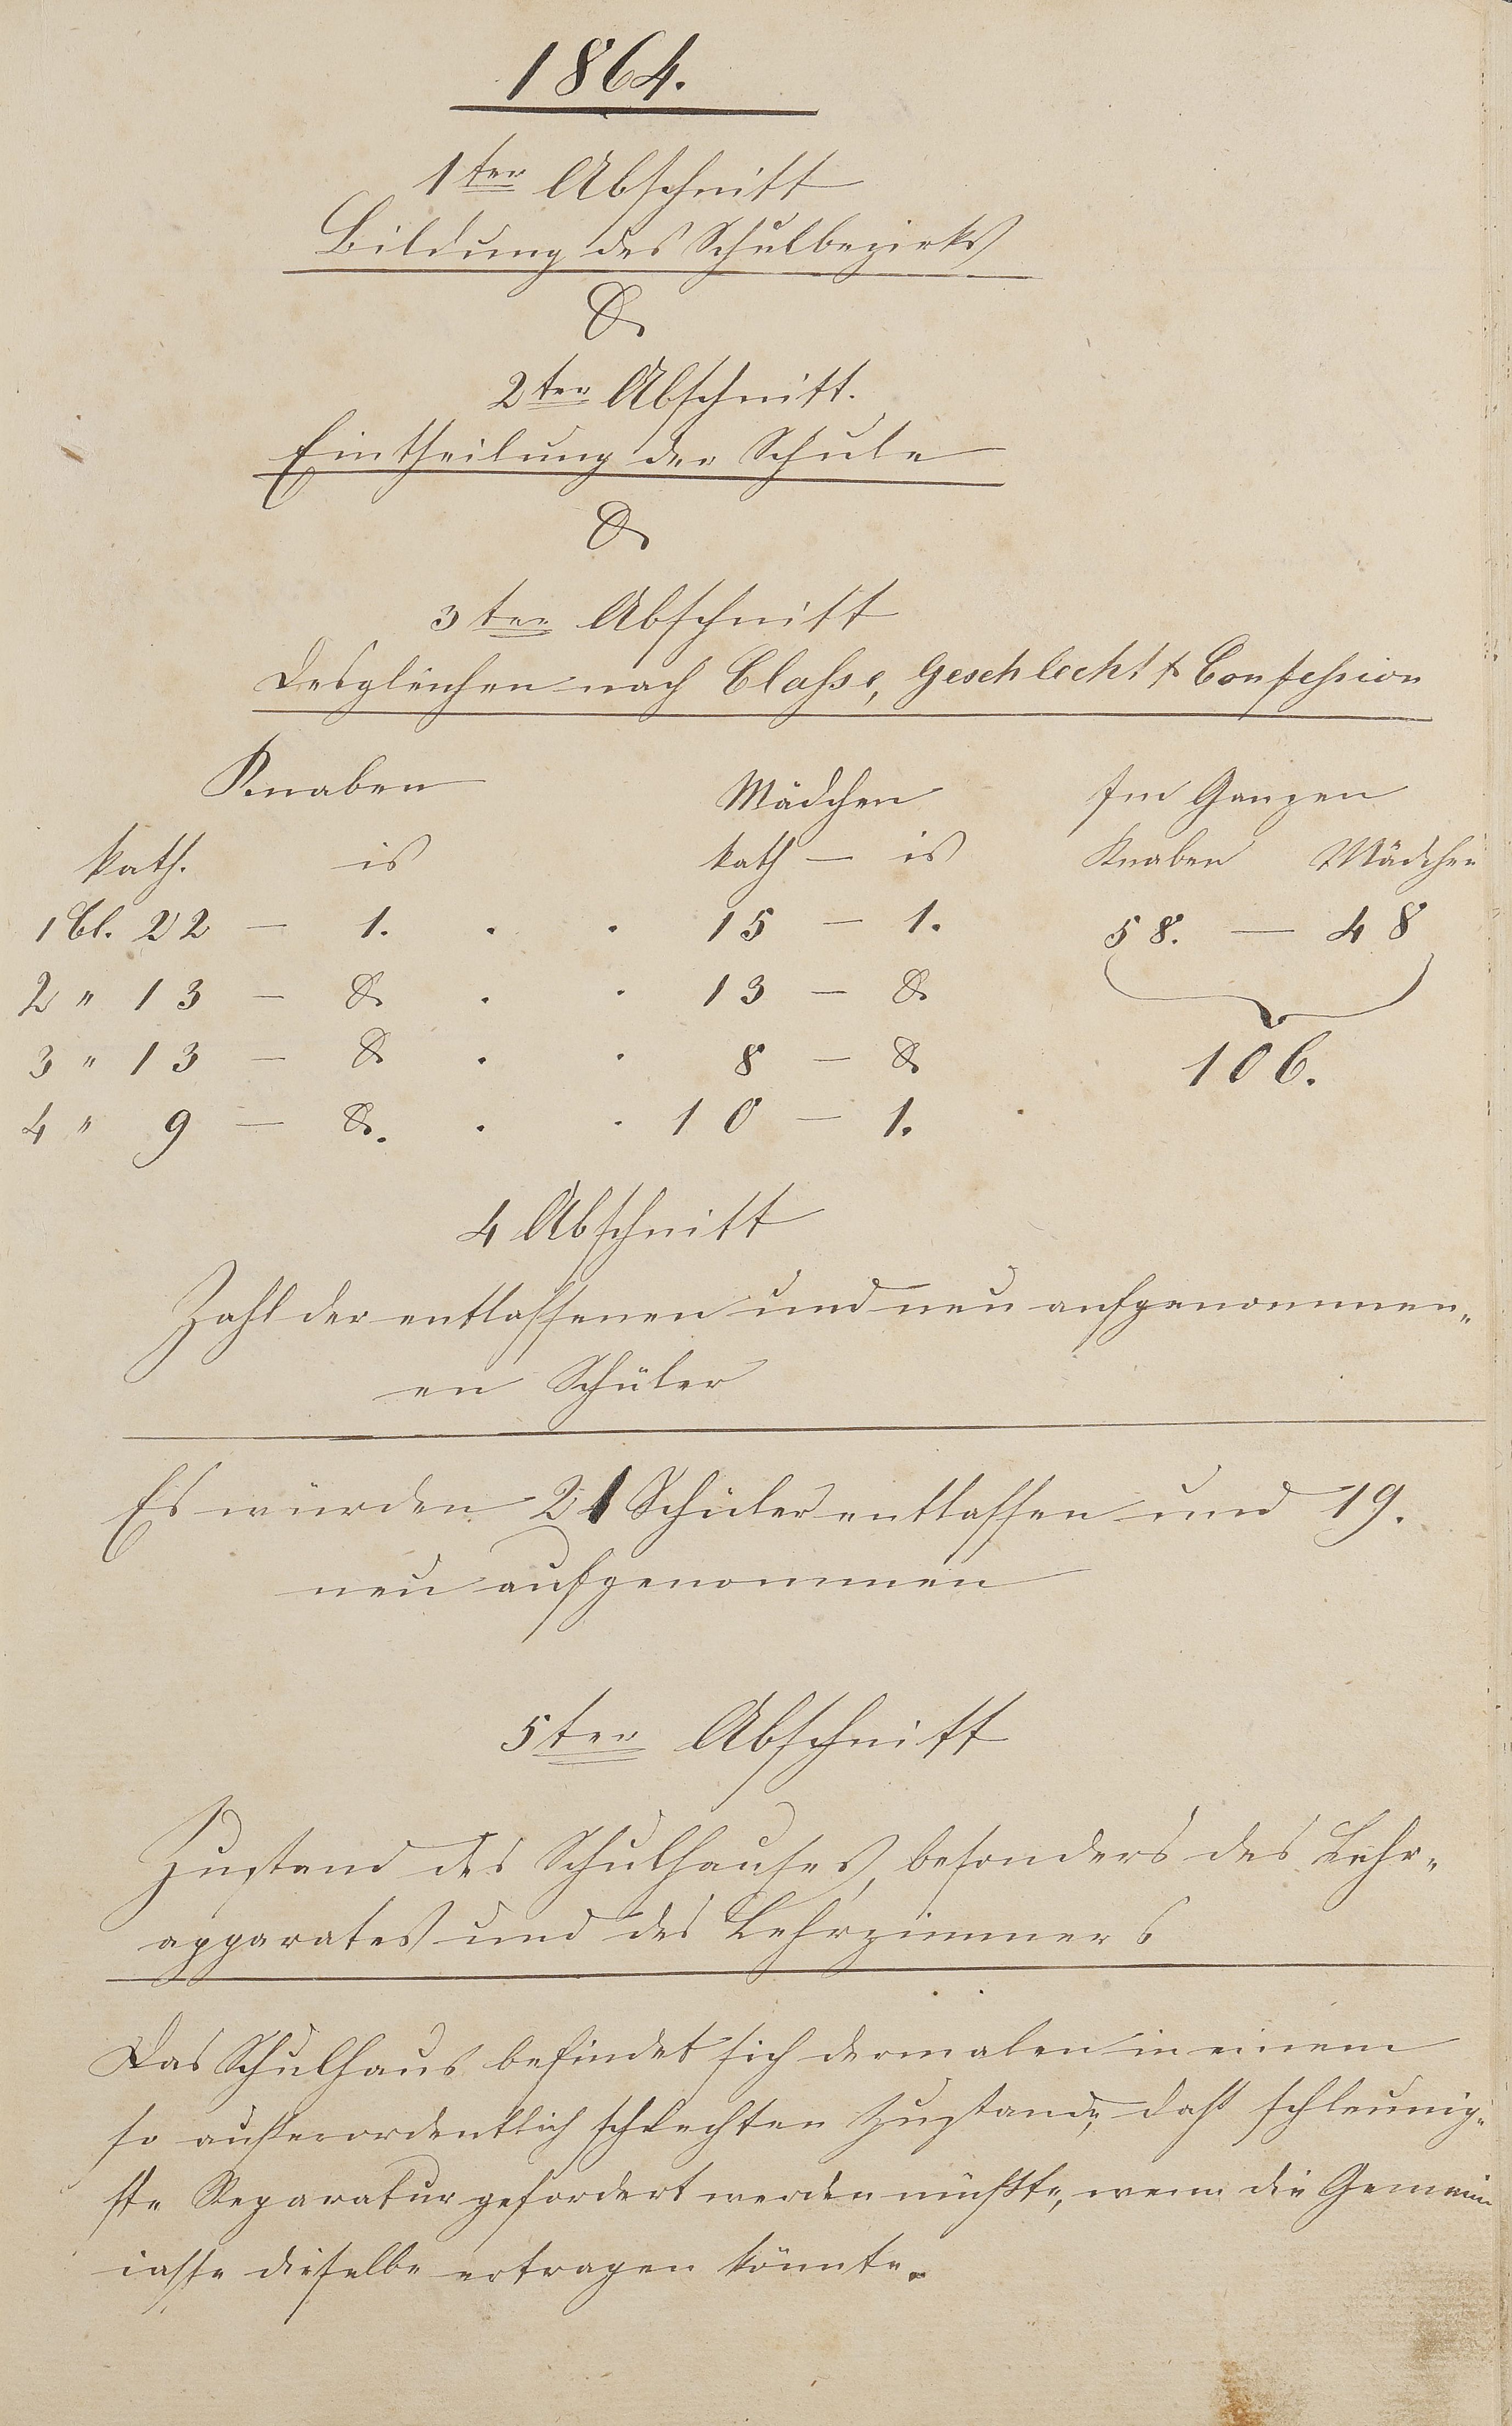 1864.
1ter Abschnitt
Bildung des Schulbezirks
&
2ter Abschnitt.
Eintheilung der Schule
&
3ter Abschnitt
Desgleichen nach Classe, Geschlecht & Confession
Knaben Mädchen Im Ganzen
kath. is kath — is Knaben Mädchen
1 Cl. 22 — 1. . . 15 — 1. 58. — 48
2 " 13 — & . . 13 — &
3 " 13 — & . . 8 — & 106.
4 " 9 — &. . . 10 — 1.
4 Abschnitt
Zahl der entlassenen und neu aufgenommen„
en Schüler
Es wurden 21 Schüler entlassen und 19.
neu aufgenommen
5ter Abschnitt
Zustand des Schulhauses, besonders des Lehr„
apparates und des Lehrzimmers
Das Schulhaus befindet sich dermalen in einem
so außerordentlich schlechten Zustande, daß schleunig„
ste Reparatur gefordert werden müßte, wenn die Gemein
casse dieselbe ertragen könnte.